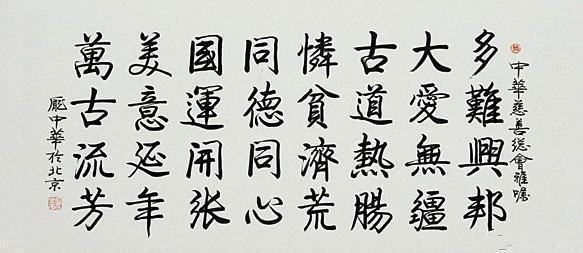 中華慈善總會雅囑
多難興邦
大愛無疆
古道熱腸
憐貧濟荒
同德同心
國運開张
美意延年
萬古流芳
龐中華於北京